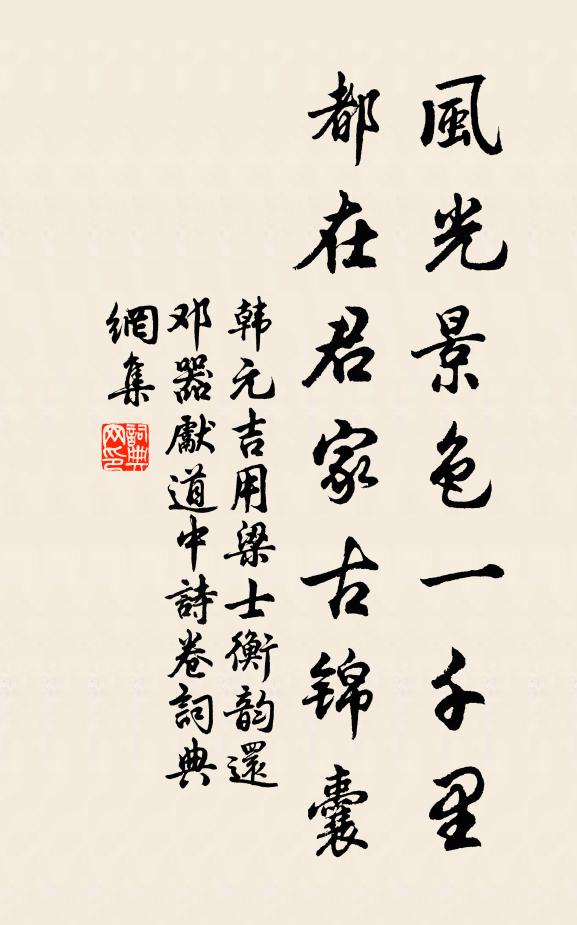 風光景色一千里
都在君家古锦囊
韩元吉用梁士衡韵還
邓器獻道中詩卷詞典
網集
詞典
网印